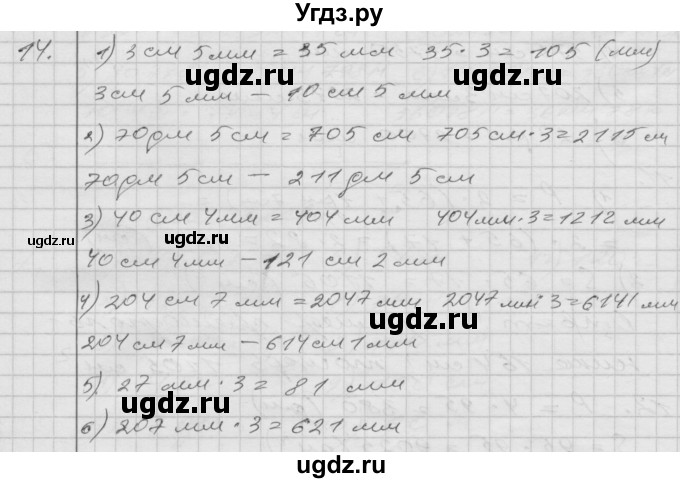 Угдз.ру
14. 1) 3 см 5 мм = 35 мм 35 · 3 = 105 (мм)
ugdz.ru ugdz.ru
3 см 5 мм – 10 см 5 мм
2) 70 дм 5 см = 705 см 705 см · 3 = 2115 см
70 дм 5 см – 211 дм 5 см
3) 40 см 4 мм = 404 мм 404 мм · 3 = 1212 мм
ugdz.ru ugdz.ru
40 см 4 мм – 121 см 2 мм
4) 204 см 7 мм = 2047 мм 2047 мм · 3 = 6141 мм
ugdz.ru
204 см 7 мм – 614 см 1 мм
5) 27 мм · 3 = 81 мм
ugdz.ru
6) 207 мм · 3 = 621 мм
ugdz.ru